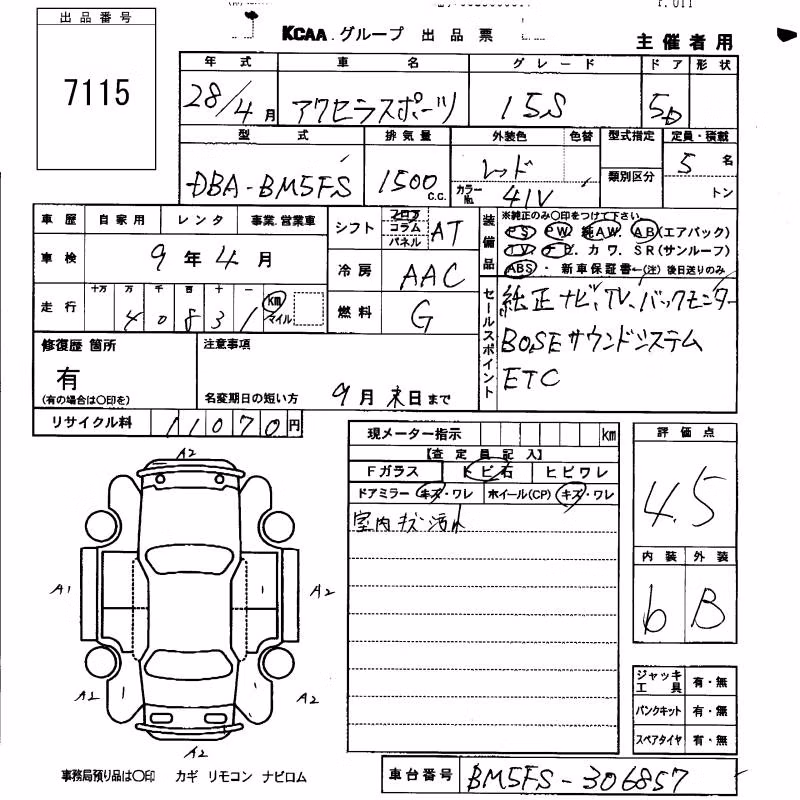 出品番号
7115
KCAA グループ 出品票
主催者用
年式 車名 グレード ドア 形状
28/4月 アクセラスポーツ 15S 5D
型式 排気量 外装色 色替 型式指定 定員・積載
DBA-BM5FS 1500 C.C. レッド 類別区分 5名
カラーNo. 41V トン
車歴 自家用 レンタ 事業.営業車
車検 9年4月
走行 十万 万 千 百 十 一
40831 km マイル
シフト フロア コラム パネル AT
冷房 AAC
燃料 G
装備品 ※純正のみ○印をつけて下さい
PS PW 純AW. AB(エアバック)
TV. ナビ. カワ. SR(サンルーフ)
ABS ・ 新車保証書←(注) 後日送りのみ
セールスポイント
純正ナビ、TV、バックモニター
BOSEサウンドシステム
ETC
修復歴 箇所
有
(有の場合は○印を)
注意事項
名変期日の短い方 9月末日まで
リサイクル料 11070円
現メーター指示 km
【査定員記入】
Fガラス トビ石 ヒビワレ
ドアミラー キズ・ワレ ホイール(CP) キズ・ワレ
室内キズ汚れ
評価点
4.5
内装 外装
6 B
A2
A1 A2
A2 A2
A2
ジャッキ工具 有・無
パンクキット 有・無
スペアタイヤ 有・無
事務局預り品は○印 カギ リモコン ナビロム
車台番号 BM5FS-306857